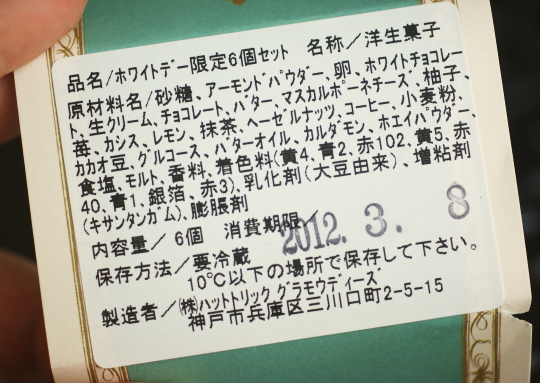 品名/ホワイトデー限定6個セット 名称/洋生菓子
原材料名/砂糖、アーモンドパウダー、卵、ホワイトチョコレー
ト、生クリーム、チョコレート、バター、マスカルポーネチーズ、柚子、
苺、カシス、レモン、抹茶、ヘーゼルナッツ、コーヒー、小麦粉、
カカオ豆、グルコース、バターオイル、カルダモン、ホエイパウダー、
食塩、モルト、香料、着色料(黄4、青2、赤102、黄5、赤
40、青1、銀箔、赤3)、乳化剤(大豆由来)、増粘剤
(キサンタンガム)、膨脹剤
内容量/6個 消費期限/2012. 3. 8
保存方法/要冷蔵
10℃以下の場所で保存して下さい。
製造者/㈱ハットトリック グラモウディーズ
神戸市兵庫区三川口町2-5-15